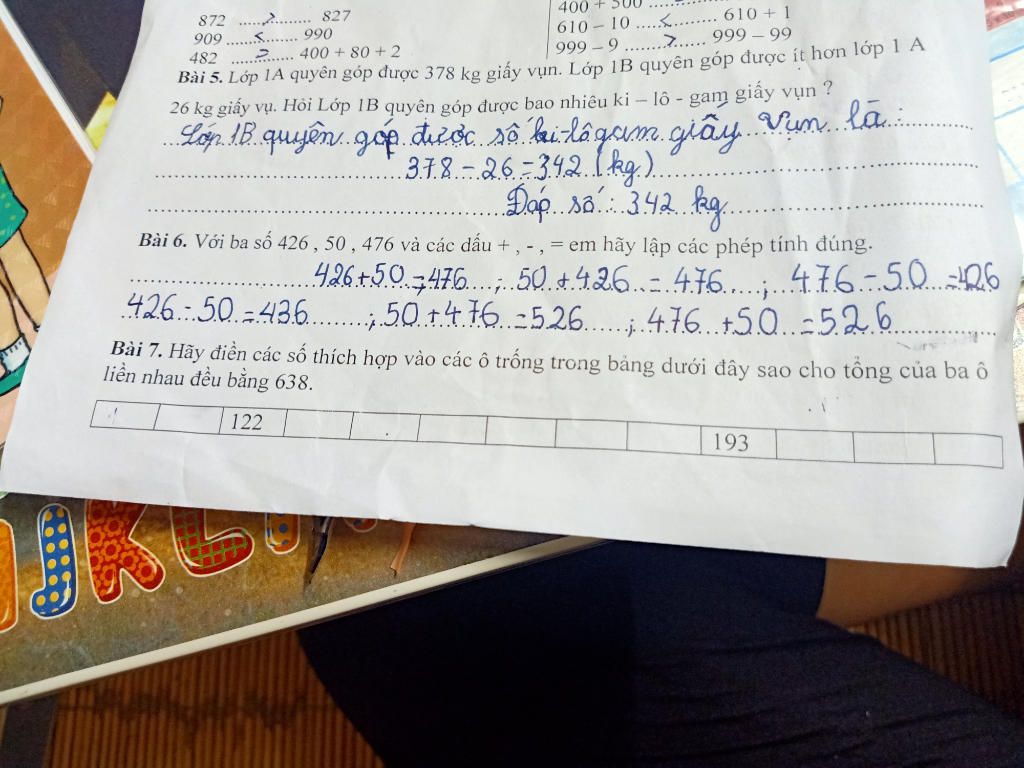 872 ....>.... 827
909 ....<.... 990
482 ....=.... 400 + 80 + 2
400 + 500
610 – 10 ....<.... 610 + 1
999 – 9 ....>.... 999 – 99
Bài 5. Lớp 1A quyên góp được 378 kg giấy vụn. Lớp 1B quyên góp được ít hơn lớp 1 A
26 kg giấy vụ. Hỏi Lớp 1B quyên góp được bao nhiêu ki – lô - gam giấy vụn ?
Lớp 1B quyên góp được số ki-lôgam giấy vụn là :
378 - 26 = 342 (kg)
Đáp số : 342 kg
Bài 6. Với ba số 426 , 50 , 476 và các dấu + , - , = em hãy lập các phép tính đúng.
426 + 50 = 476 ; 50 + 426 = 476 ; 476 - 50 = 426
426 - 50 = 436 ; 50 + 476 = 526 ; 476 + 50 = 526
Bài 7. Hãy điền các số thích hợp vào các ô trống trong bảng dưới đây sao cho tổng của ba ô
liền nhau đều bằng 638.
122 193
J K L